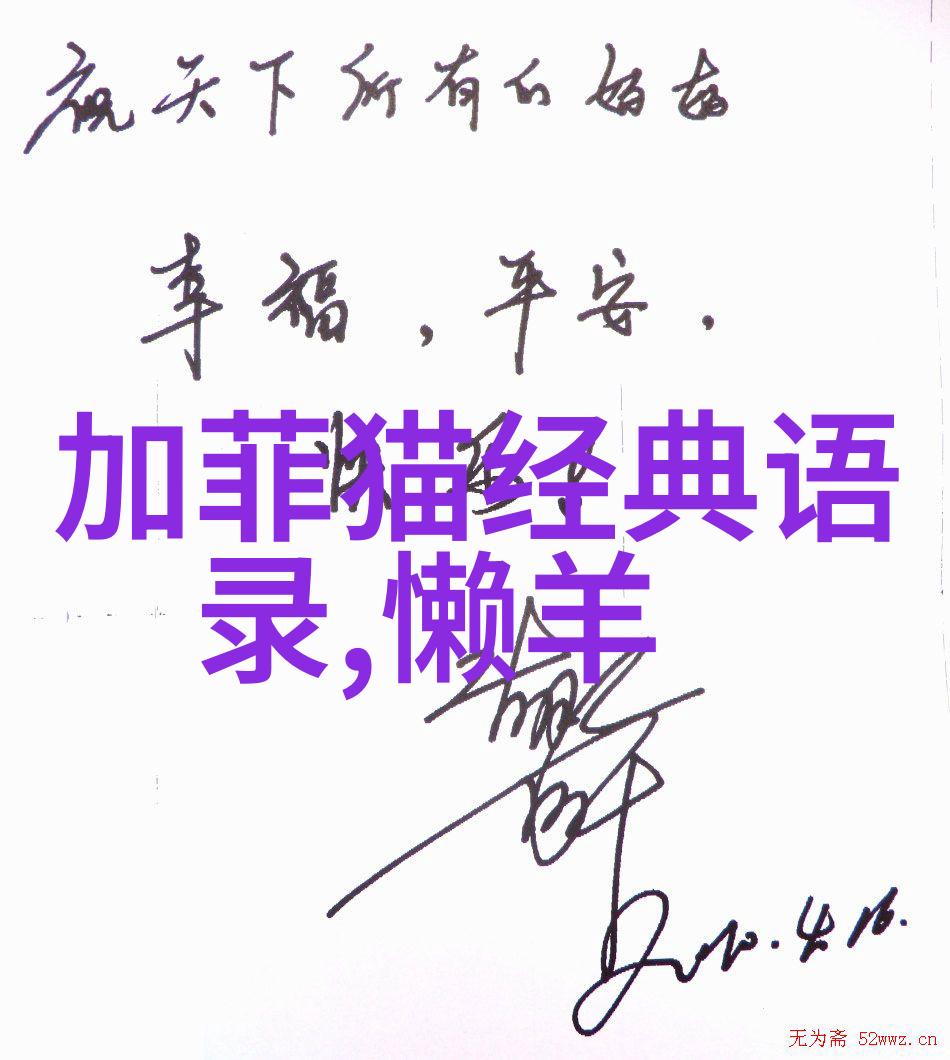 祝天下所有的妈妈
幸福，平安，
加菲猫经典语
录,懒羊
2010.4.16.
无为斋 52wwz.cn